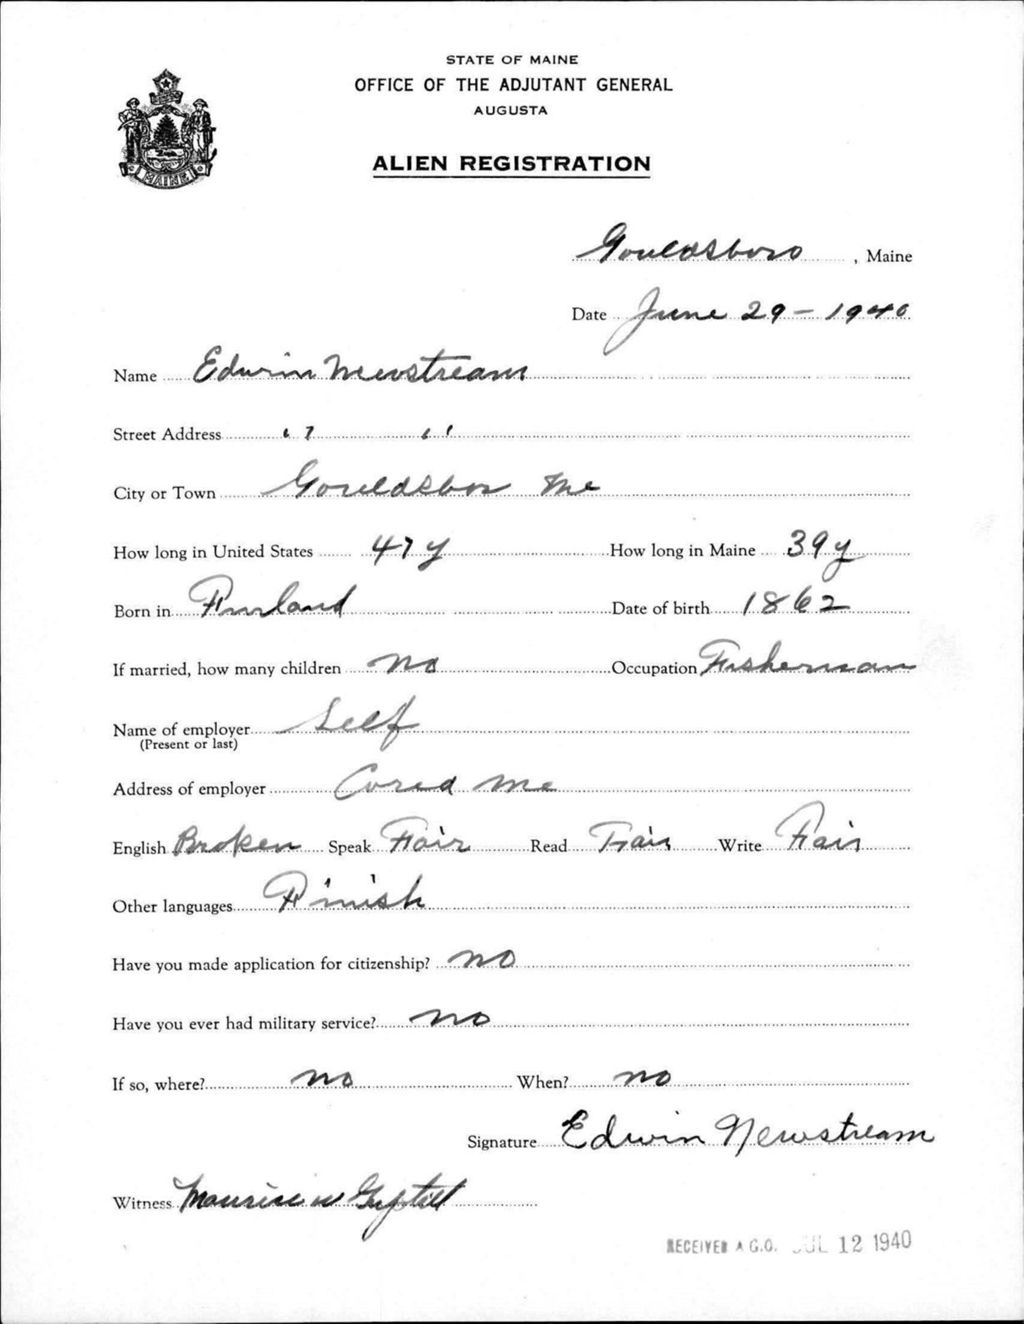 STATE OF MAINE
OFFICE OF THE ADJUTANT GENERAL
AUGUSTA
ALIEN REGISTRATION
MAINE
Gouldsboro, Maine
Date June 29 - 1940
Name Edwin Newstream
Street Address " "
City or Town Gouldsboro Me
How long in United States 47 y How long in Maine 39 y
Born in Finland Date of birth 1862
If married, how many children no Occupation Fisherman
Name of employer Self
(Present or last)
Address of employer Corea Me
English Broken Speak Fair Read Fair Write Fair
Other languages Finish
Have you made application for citizenship? no
Have you ever had military service? no
If so, where? no When? no
Signature Edwin Newstream
Witness Maurice W Guptill
RECEIVED A.G.O. JUL 12 1940